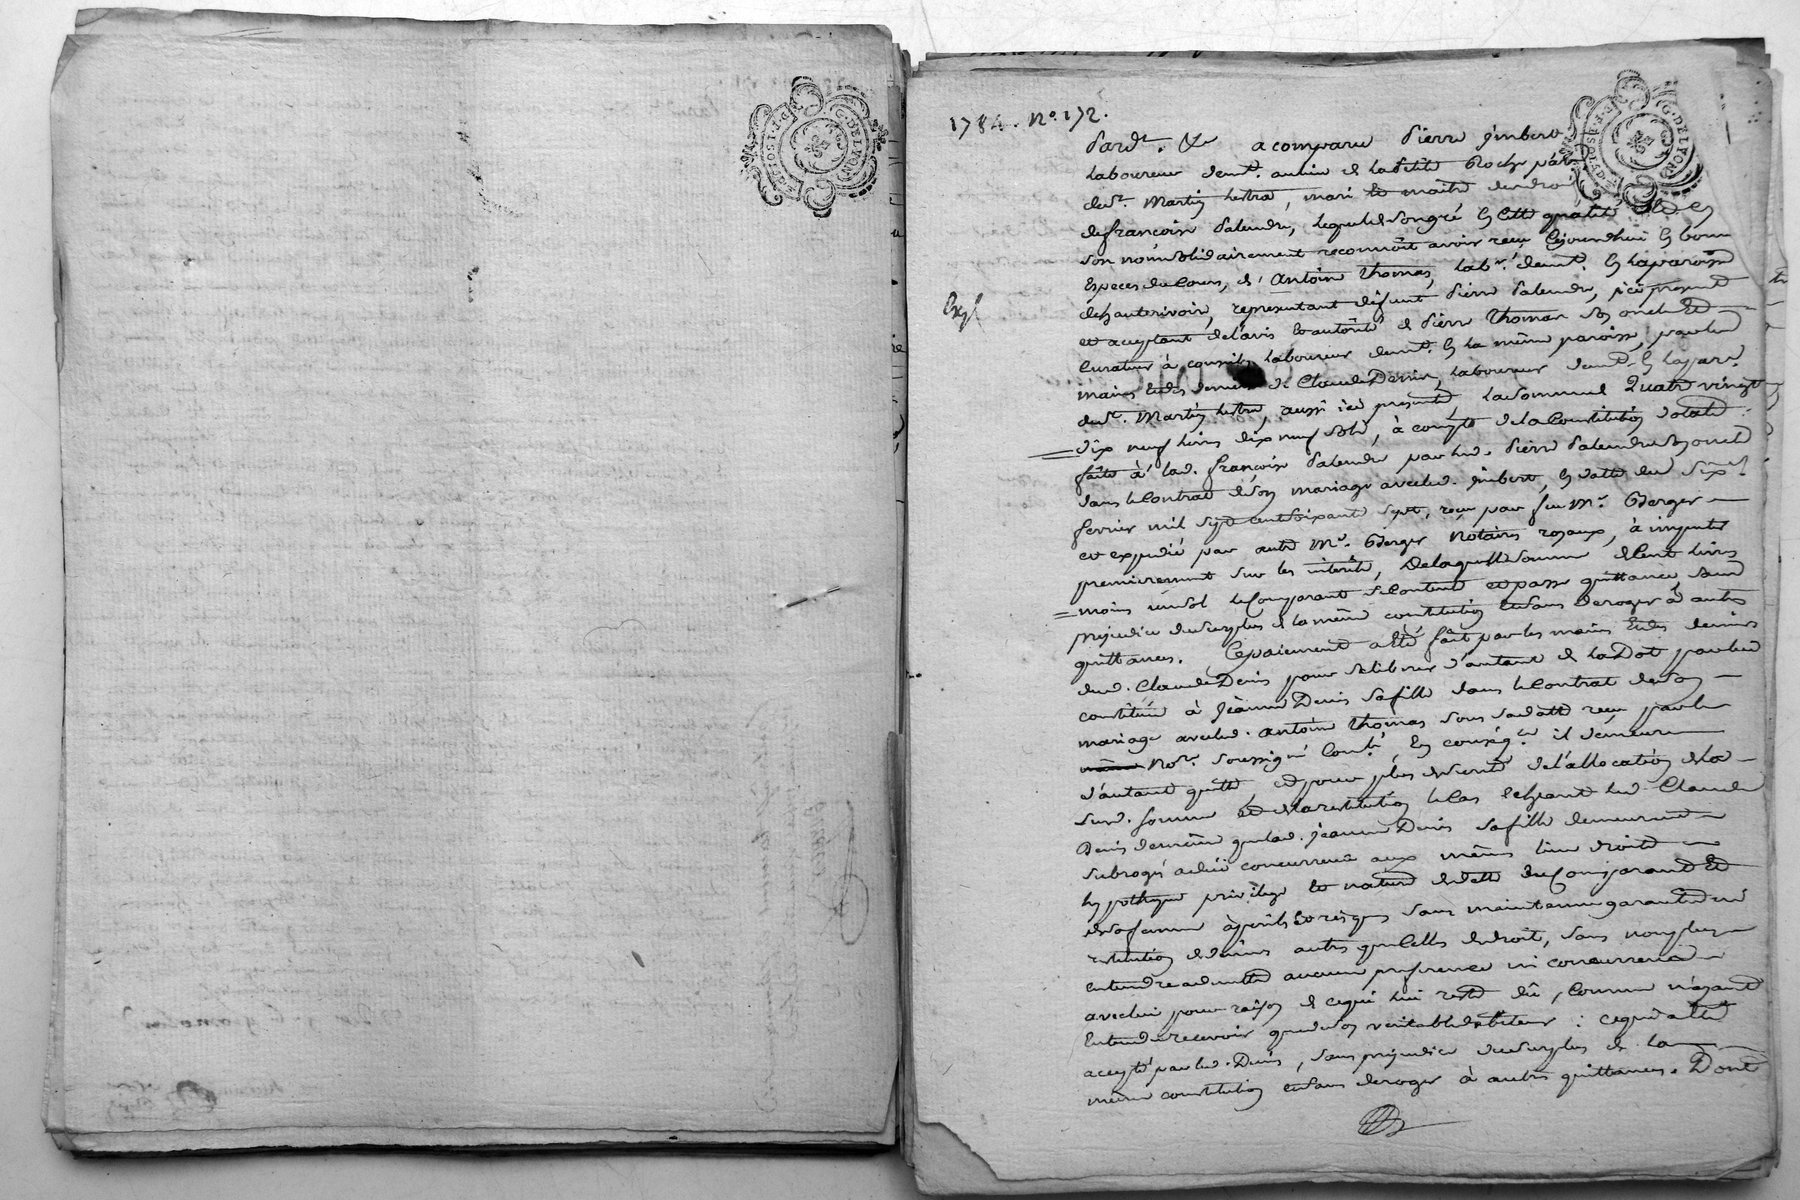 G. DE LYON
DEUX SOLS
G. DE LYON
1784. No. 172.
Pardt. &e a comparu Pierre Imbert
laboureur demt. au lieu de la petite Roche par
de St. Martin lestra, mari et maitre des droits
de françoise Palandre, lequel de son gré en cette qualité
son nom solidairement reconnoît avoir reçu cejourdhui en bonnes
Especes du Cours, de Antoine thomas, labr. demt. en la paroisse
d'hauterivoire, representant défunt Pierre Palandre, ici present
et acceptant de l'avis et autorité de Pierre thomas son oncle et
Exp.
Curateur à conseils laboureur demt. en la même paroisse, par les
mains et des deniers de Claude Denis, laboureur demt. en la par.
de St. Martin lestra, aussi ici present, la somme de Quatre vingt
dix neuf livres dix neuf sols, à compte de la Constitution dotale
faite à lad. françoise Palandre par led. Pierre Palandre son oncle
dans le Contrat de son mariage avec led. imbert, en datte du Six
fevrier mil sept cent soixante sept, reçu par feu Mr. Berger
et expedié par autre Mr. Berger Notaires royaux, à imputer
premierement sur les interêts, De laquelle somme de Cent livres
moins un sol le Comparant se Contente et passe quittance, sans
prejudice du surplus de la même constitution et sans deroger à autres
quittances. Ce paiement a Eté fait par les mains et des deniers
dud. Claude Denis pour se liberer d'autant de la Dot par lui
constituée à Jeanne Denis sa fille dans le Contrat de son
mariage avec led. antoine thomas sous sa datte reçu par le
Nore. soussigné Conté, En conséqce. il demeure
d'autant quitte, et pour plus de sureté de l'allocation de la
susd. somme et de la restitution le Cas echeant led. Claude
Denis de même que lad. jeanne Denis sa fille demeurent
subrogé à due concurrence aux mêmes lieu droits
hypotheque privilege et nature de dette du Comparant et
de sa femme à perils et risques sans maintenue garantie ni
restitution de deniers autres que Celles de droit, sans non plus
entendre admettre aucune preference ni concurrence
avec lui pour raison de ce qui lui reste dû, Comme n'ayant
Entendu recevoir que de son veritable debiteur : ce qui a été
accepté par led. Denis, sans prejudice du surplus de la
même constitution et sans deroger à autres quittances. Dont